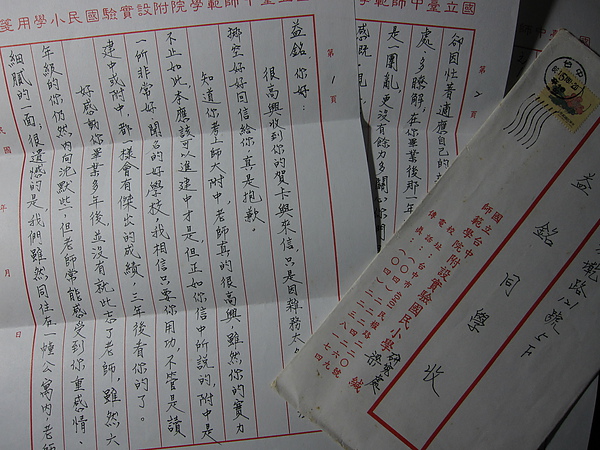 國立臺中師範學院附設實驗國民小學用箋
第1頁
益銘,你好:
很高興收到你的賀卡與來信,只是因雜務太
挪空好好回信給你,真是抱歉。
知道你考上師大附中,老師真的很高興,雖然你的實力
不止如此,本應該可以進建中才是,但正如你信中所說的,附中是
一所非常好,開名的好學校,我相信只要你用功,不管是讀
建中或附中,都一樣會有傑出的成績,三年後看你的了。
好感動你畢業多年後,並沒有就此忘了老師,雖然六
年級的你仍然內向沈默些,但老師常能感受到你重感情、
細膩的一面;很遺憾的是,我們雖然同住在一幢公寓內,老師
民國 年 月 日
國立臺中師範學院附設
第2頁
卻因忙著適應自己的
處、多瞭解,在你畢業後那一年
是一團亂,更沒有餘力多關心你們
台中
路21號5F
益銘同學 收
國立台中師範學院附設實驗國民小學 緘
校址:台中市
電話:(〇四)
傳